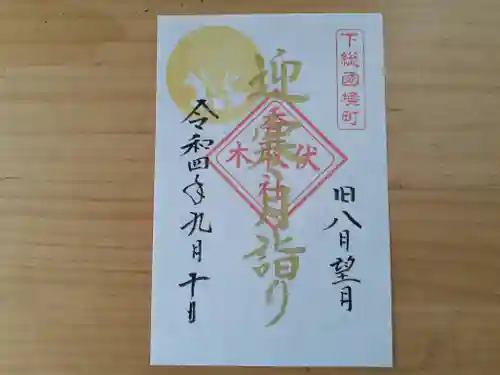 下総國境町
旧八月望月
迎月詣り
伏木
香取社
令和四年九月十日